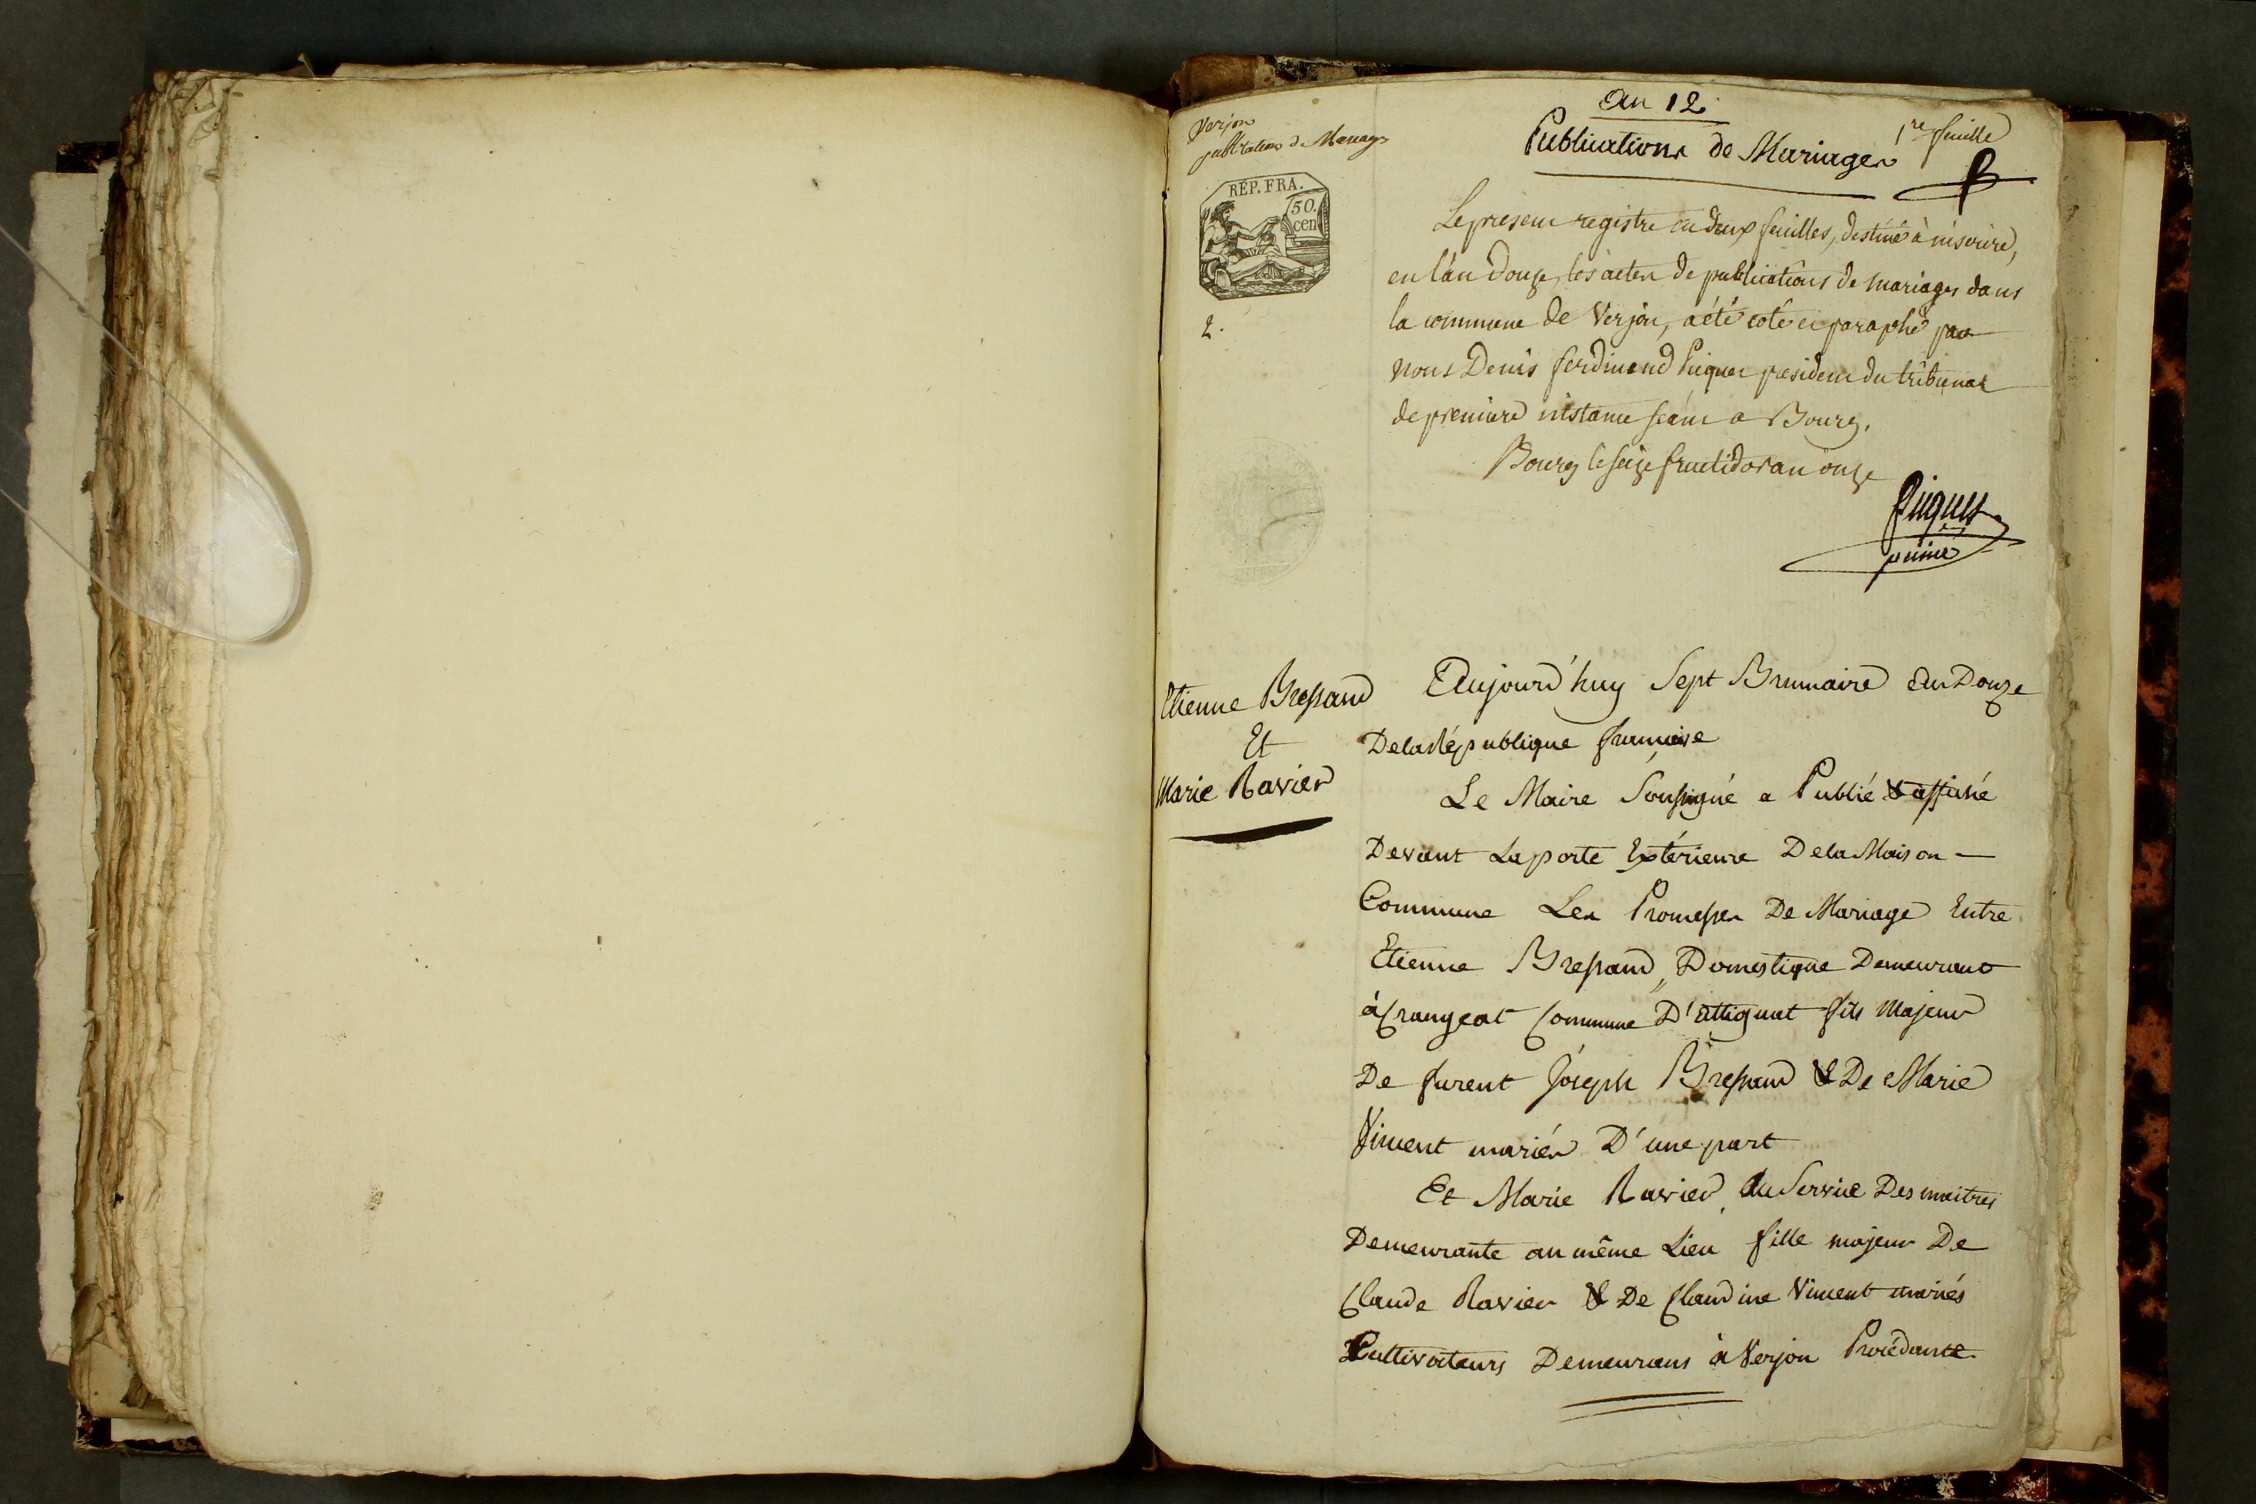 An 12
Verjon
publications de Mariages
Publications de Mariages
1re feuille
RÉP. FRA.
50.
cen
2.
Le present registre en deux feuilles, destiné à inscrire,
en l'an douze, les actes de publications de mariages dans
la commune de Verjon, a été coté et paraphé par
nous Denis ferdinand Piquet president du tribunal
de premiere instance séant a Bourg.
Bourg le seize fructidor an onze
Piquet
Etienne Bressand
Et
Marie Ravier
Aujourd'huy Sept Brumaire An Douze
De la République francaise
Le Maire Soussigné a Publié & affiché
Devant La porte Extérieure De la Maison
Commune Les Promesses De Mariage Entre
Etienne Bressand, Domestique Demeurant
à Crangeat Commune D'attignat fils Majeur
De furent Joseph Bressand & De Marie
Vincent mariés D'une part
Et Marie Ravier, Au Service Des maitres
Demeurante au même Lieu fille majeur De
Claude Ravier & De Claudine Vincent mariés
Cultivateurs Demeurans à Verjon Procédante